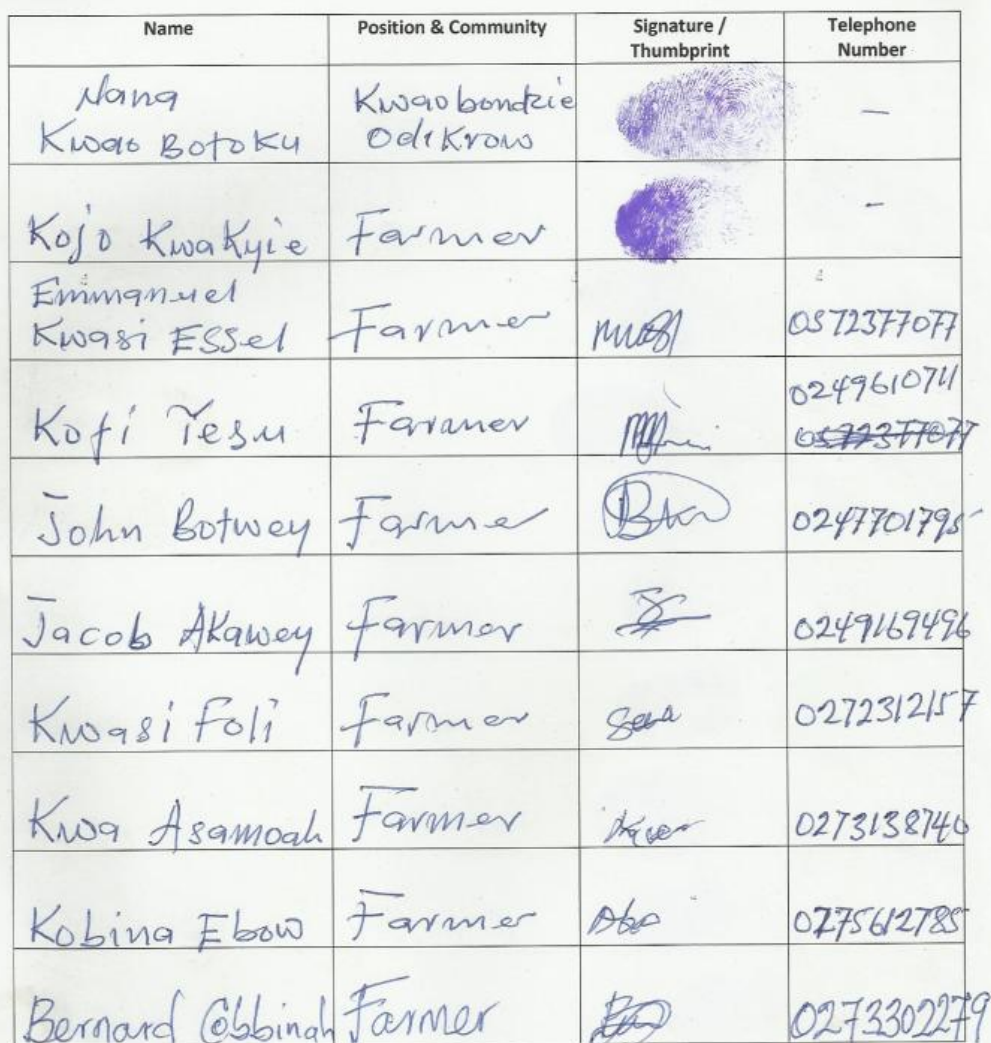 Name Position & Community Signature / Thumbprint Telephone Number
Nana Kwao Botoku Kwaobondzie Odikrow —
Kojo Kwakyie Farmer -
Emmanuel Kwasi Essel Farmer 0572377077
Kofi Yesu Farmer 0249610711 0572377077
John Botwey Farmer 0247701795
Jacob Akawey Farmer 0249169496
Kwasi Foli Farmer 0272312157
Kwa Asamoah Farmer 0273138740
Kobina Ebow Farmer 0275612785
Bernard Cobbinah Farmer 0273302279